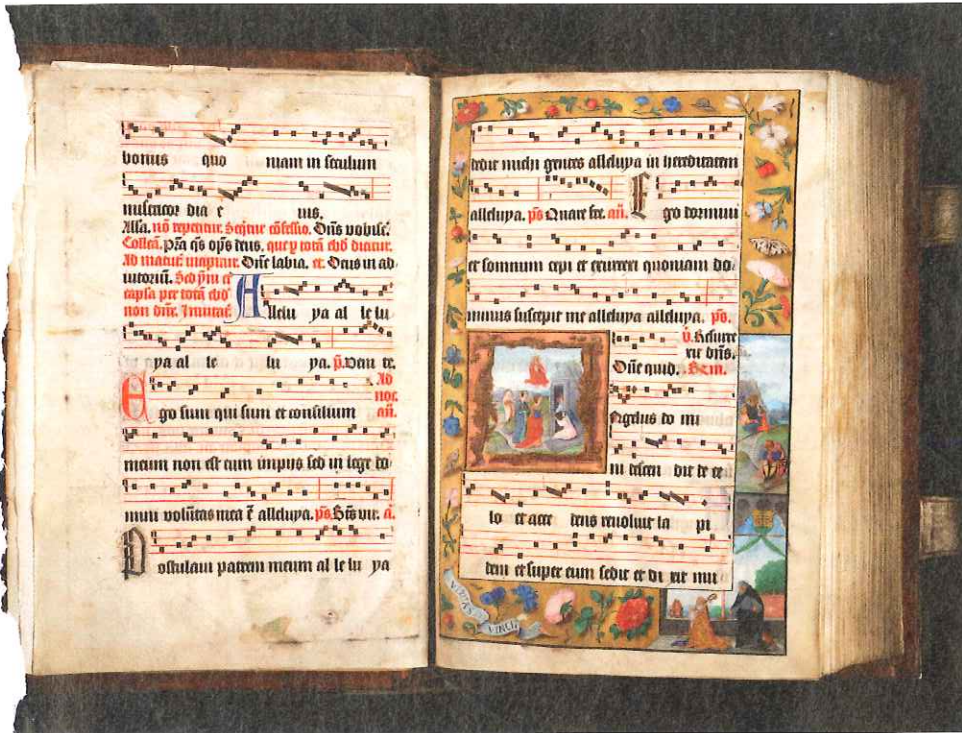 bonus quo niam in seculum
misericor dia e ius.
Alla. nō repetitur. Seqitur cōfessio. Oñs vobisc̄.
Collcā. Pr̄a q̄s op̄s deus. que p totā ebd̄ dicitur.
Ad matuť incipitur. Dn̄e labia. et. Deus in ad
iutoriū. Sed
capła per totā ebd̄
non dn̄r. Inuitať. Alleiu ya al le lu
ya al le lu ya. p̄. Venite.
Ad
nor.
Ego sum qui sum et consilium an̄.
meum non est cum impiis sed in lege do
mini volūtas mea ē alleluya. ps̄ Bt̄s vir. a.
Postulaui patrem meum al le lu ya
dedit michi gentes alleluya in hereditatem
alleluya. ps̄ Quare fre. an̄. Ego dormiui
et somnum cepi et exurrexi quoniam do
minus suscepit me alleluya alleluya. ps̄.
v̄. Resurre
xit dn̄s.
Dn̄e quid.
Angelus do mi
ni descen dit de ce
lo et acce dens reuoluit la pi
dem et super eum sedit et di xit mu
VERITAS
VINCIT